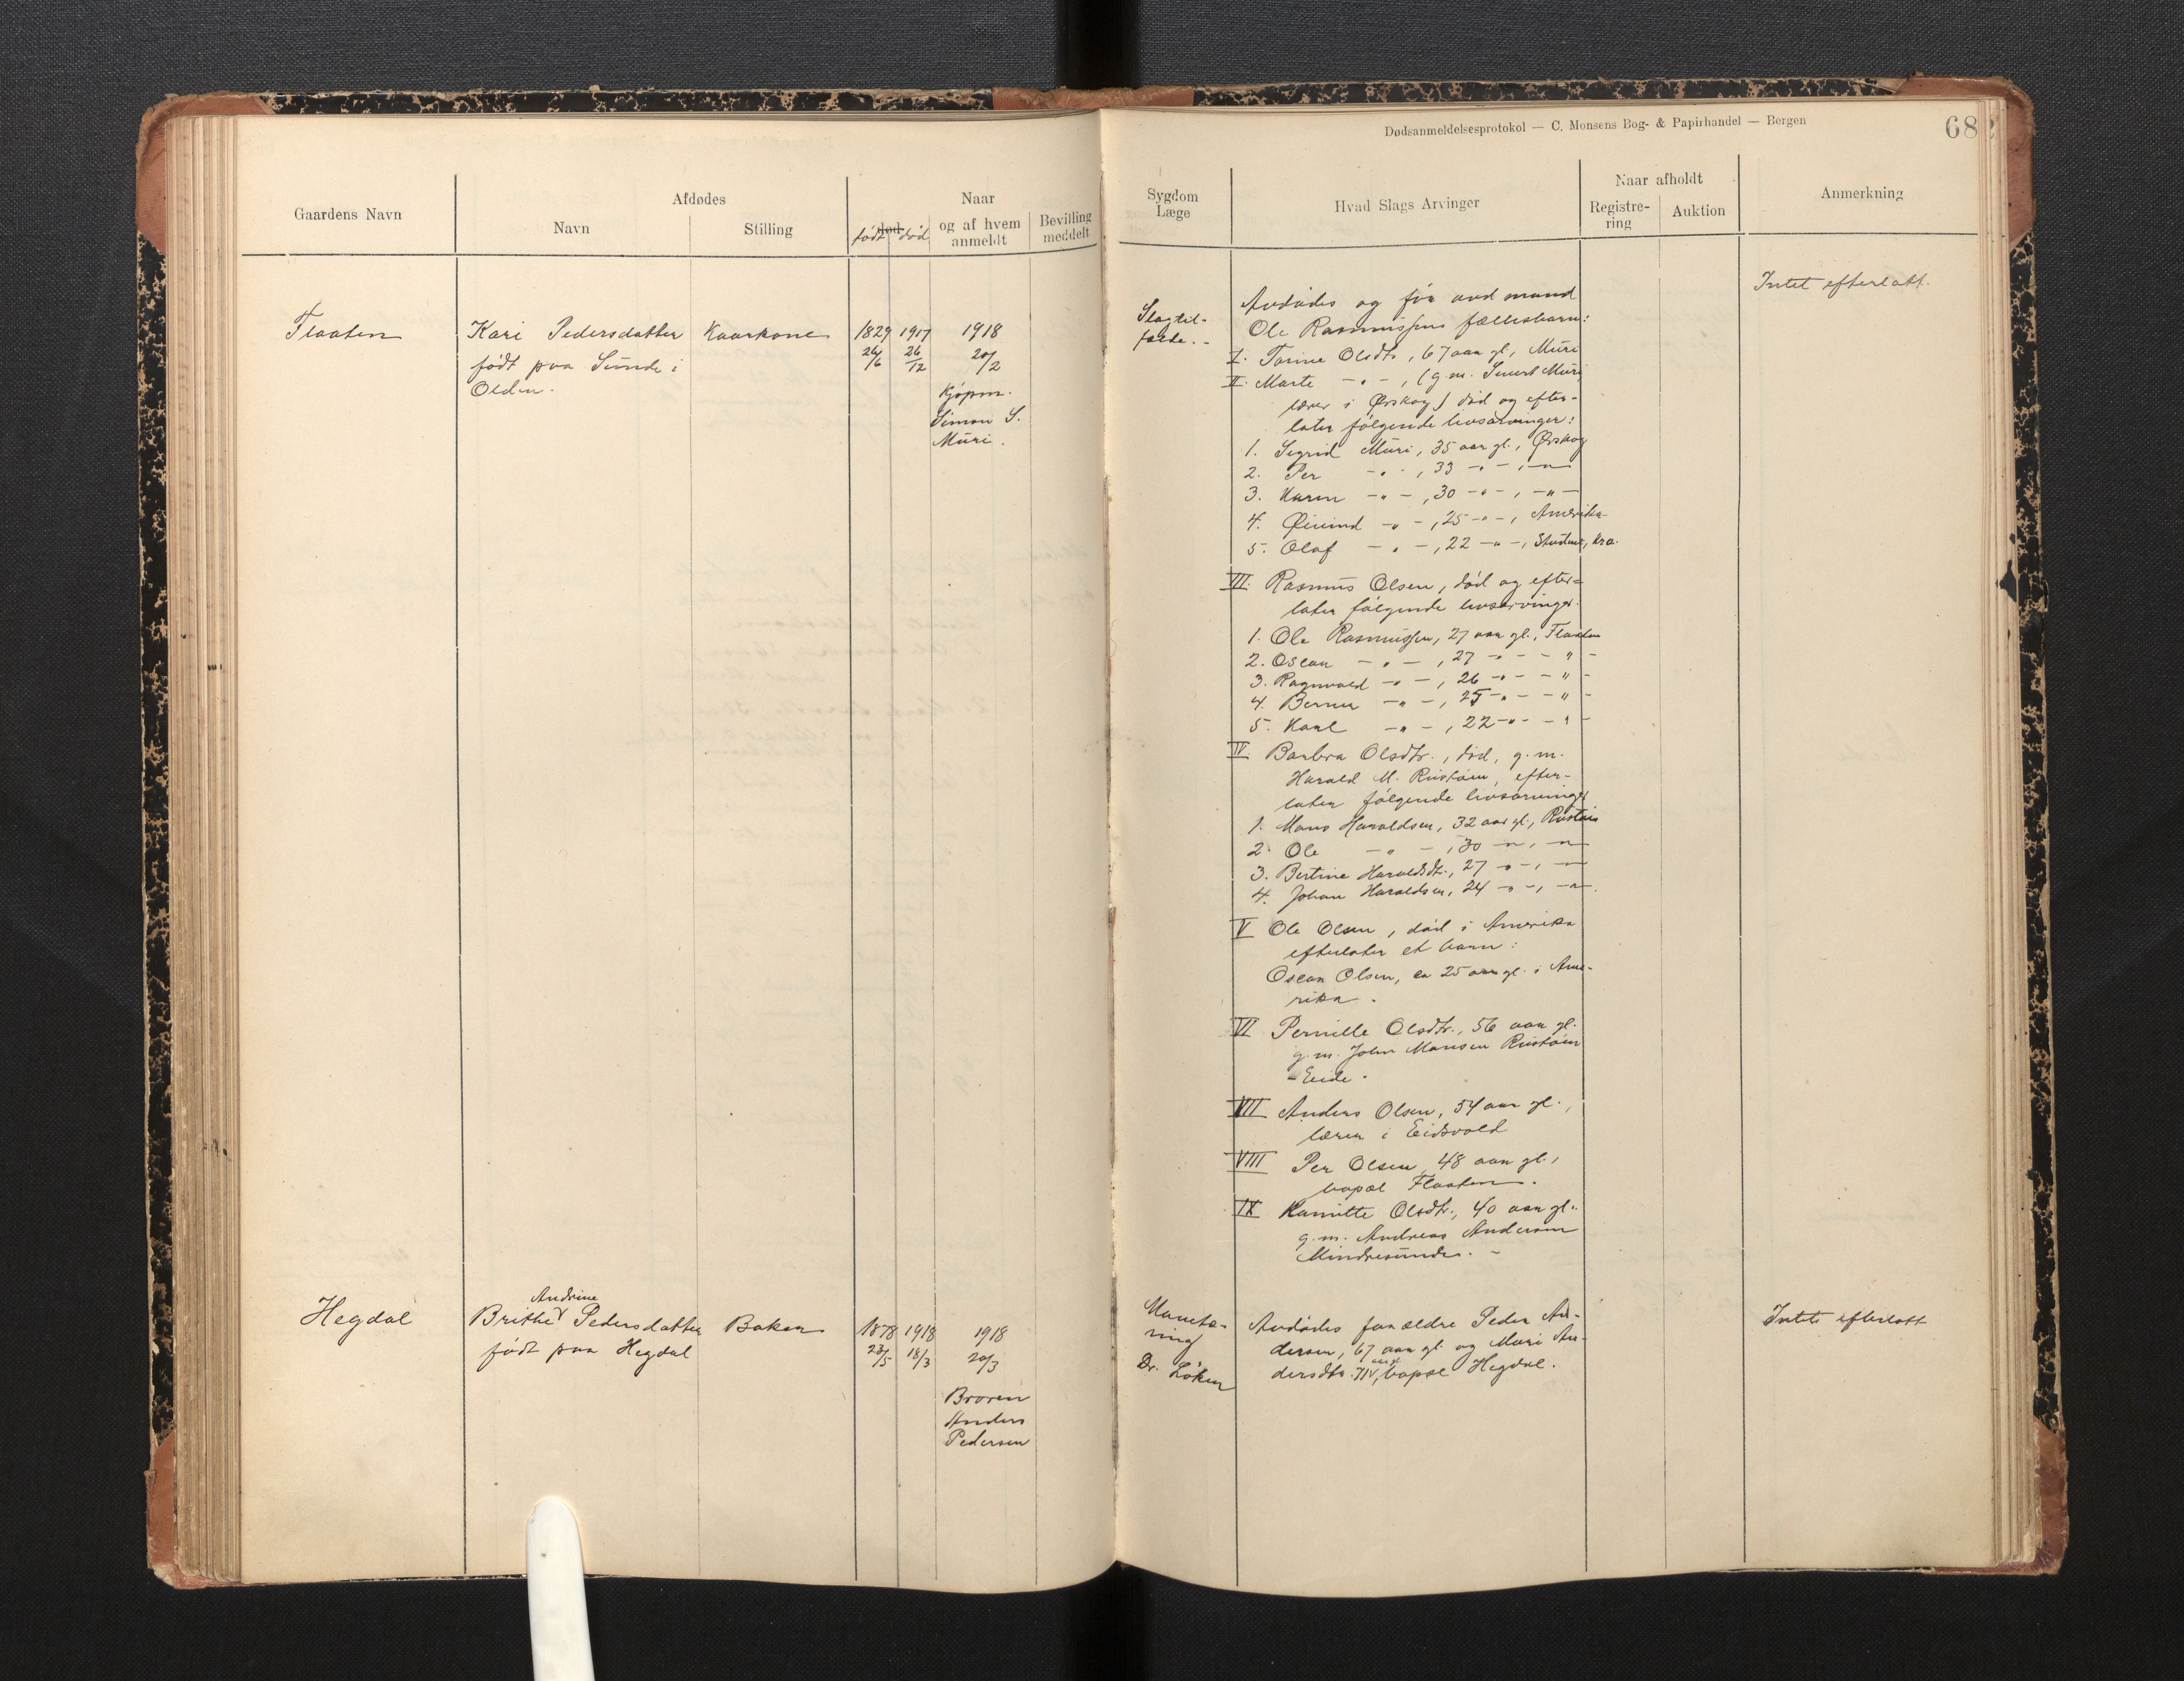 Dødsanmeldelsesprotokol — C. Monsens Bog- & Papirhandel — Bergen
68
Gaardens Navn
Afdødes
Navn
Stilling
død
født død
Naar
og af hvem
anmeldt
Bevilling
meddelt
Sygdom
Læge
Hvad Slags Arvinger
Naar afholdt
Registre-
ring
Auktion
Anmerkning
Flaaten
Kari Pedersdatter
født paa Sunde i
Olden.
Kaarkone
1829
26/6
1917
26/12
1918
20/2
Kjøpm.
Simon S.
Muri.
Slagtil-
fælde. -
Avdødes og før avd mand
Ole Rasmussens fællesbarn:
I. Torine Olsdtr, 67 aar gl., Muri
II. Marte - " - , (g.m. Sivert Muri
lærer i Ørskog) død og efter-
later følgende livsarvinger:
1. Sigrid Muri, 35 aar gl., Ørskog
2. Per - " - , 33 - " - , - " -
3. Karen - " - , 30 - " - , - " -
4. Øivind - " - , 25 - " - , Amerika
5. Olaf - " - , 22 - " - , Student, Kra.
III. Rasmus Olsen, død og efter-
later følgende livsarvinger.
1. Ole Rasmussen, 27 aar gl., Flaaten
2. Oscar - " - , 27 - " - - " -
3. Ragnvald - " - , 26 - " - - " -
4. Berner - " - , 25 - " - - " -
5. Karl - " - , 22 - " - - " -
IV. Barbra Olsdtr., død, g.m.
Harald M. Rustøen, efter-
later følgende livsarvinger
1. Mons Haraldsen, 32 aar gl., Rustøen
2. Ole - " - , 30 - " - , - " -
3. Bertine Haraldsdtr., 27 - " - , - " -
4. Johan Haraldsen, 24 - " - , - " -
V Ole Olsen, død i Amerika
efterlater et barn:
Oscar Olsen, ca 25 aar gl. i Ame-
rika.
VI Pernille Olsdtr., 56 aar gl.
g.m. John Monsen Rustøen
- Eide.
VII Anders Olsen, 54 aar gl.,
lærer i Eidsvold
VIII Per Olsen, 48 aar gl.,
bopæl Flaaten.
IX Kamitte Olsdtr., 40 aar gl.
g.m. Andreas Andersen
Mindresunde. -
Intet efterlatt.
Hegdal
Andrine
Brithe Pedersdatter
født paa Hegdal
1878
23/5
1918
18/3
1918
20/3
Broren
Anders
Pedersen
Dr. Løken
Avdødes forældre Peder An-
dersen, 67 aar gl. og Mari An-
dersdtr. 71 aar gl., bopæl Hegdal.
Intet efterlatt